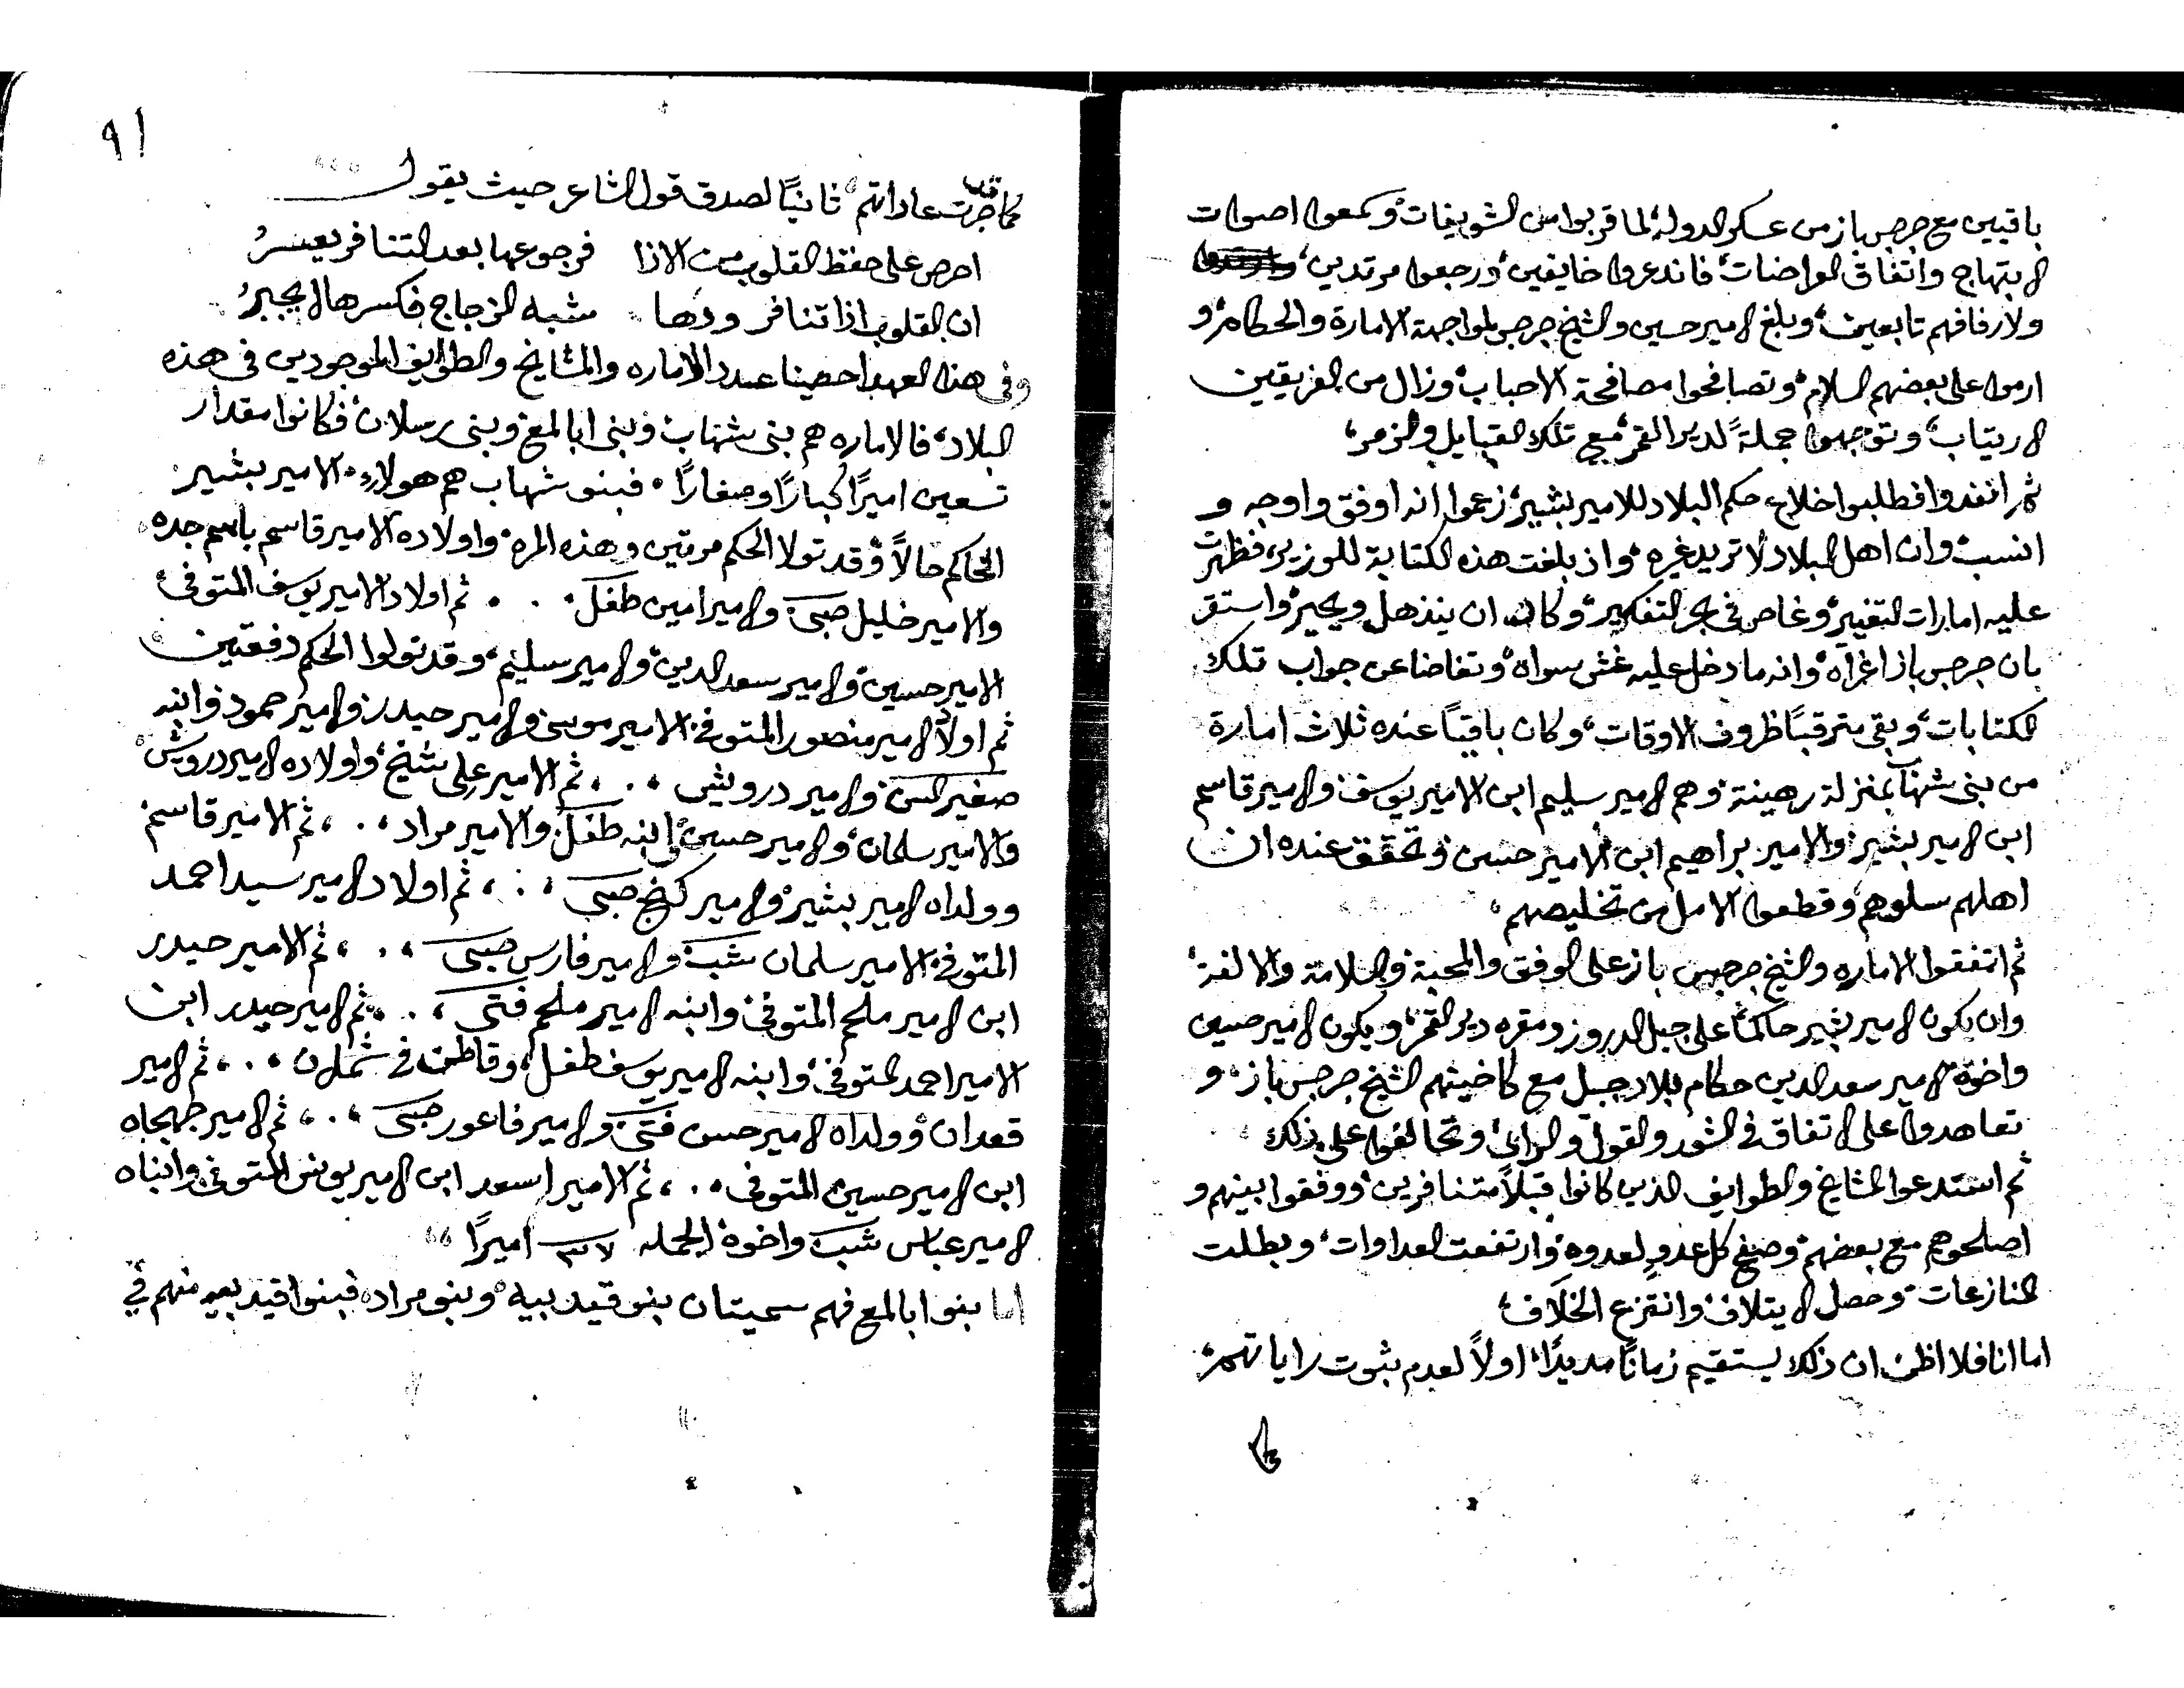 باقيين مع جرجس باز من عسكر الدوله، لما قربوا من الشويفات، وسمعوا اصوات
الابتهاج واتفاق العراضات، فاندعروا خايفين، ورجعوا مرتدين،
ولارفاقهم تابعين، وبلغ الامير حسين والشيخ جرجس لمواجهة الامارة والحكام، و
ارموا على بعضهم السلام، وتصافحوا مصافحة الاحباب، وزال من الفريقين
الارتياب، وتوجهوا جملةً لدير القمر، مع تلك القبايل والزمر،
ثم انفدوا فطلبوا خلاع حكم البلاد للامير بشير، زعموا انه اوفق واوجه و
انسب، وان اهل البلاد لا تريد غيره، واذ بلغت هذه الكتابة للوزير، فظهرت
عليه امارات التغيير، وغاص في بحر التفكير، وكاد ان ينذهل ويحير، واستقر
بان جرجس باز اغراه، وانه ما دخل عليه غش سواه، وتغاضا عن جواب تلك
الكتابات، وبقي مترقبًا ظروف الاوقات، وكان باقيًا عنده ثلاث امارة
من بني شهاب بمنزلة رهينة، وهم الامير سليم ابن الامير يوسف، والامير قاسم
ابن الامير بشير، والامير براهيم ابن الامير حسن، وتحقق عنده ان
اهلهم سلوهم، وقطعوا الامل من تخليصهم،
ثم اتفقوا الاماره والشيخ جرجس باز على الوفق والمحبة والسلامة والالفة،
وان يكون الامير بشير حاكمًا على جبل الدروز ومقره دير القمر، ويكون الامير حسين
واخوه الامير سعد الدين حكام بلاد جبيل مع كاخيتهم الشيخ جرجس باز، و
تعاهدوا على الاتفاق في الشور والقول والراي، وتحالفوا على ذلك
ثم استدعوا المشايخ والطوايف الذين كانوا قبلاً متنافرين، ووفقوا بينهم و
اصلحوهم مع بعضهم، وصفح كل عدوٍ لعدوه، وارتفعت العداوات، وبطلت
المنازعات، وحصل الايتلاف، وانقزع الخلاف،
اما انا فلا اظن ان ذلك يستقيم زمانًا مديدًا، اولاً لعدم ثبوت راياتهم،
٩١
كما قد جرت عاداتهم، ثانيًا لصدق قول الشاعر حيث يقول
احرص على حفظ القلوب من الاذا فرجوعها بعد التنافر يعسرُ
ان القلوب اذا تنافر ودها شبه الزجاج فكسرها لا يجبرُ
وفي هذا العهد احصينا عدد الاماره والمشايخ والطوايف الموجودين في هذه
البلاد، فالاماره هم بني شهاب وبني ابا اللمع وبني رسلان، فكانوا مقدار
تسعين اميرًا كبارًا وصغارًا، فبنو شهاب هم هولاء، الامير بشير
الحاكم حالاً، وقد تولا الحكم مرتين وهذه المره، واولاده الامير قاسم باسم جده
والامير خليل صبي، والامير امين طفل، ثم اولاد الامير يوسف المتوفي،
الامير حسين، والامير سعد الدين، والامير سليم، وقد تولوا الحكم دفعتين
ثم اولاد الامير منصور المتوفي، الامير موسى والامير حيدر، والامير حمود وابنه
صغير السن، والامير درويش، ثم الامير علي شيخ، واولاده الامير درويش،
والامير سلمان، والامير حسين وابنه طفل، والامير مراد، ثم الامير قاسم
وولداه الامير بشير، والامير كنج صبي، ثم اولاد الامير سيد احمد
المتوفي، الامير سلمان شب، والامير فارس صبي، ثم الامير حيدر
ابن الامير ملحم المتوفي، وابنه الامير ملحم فتى، ثم الامير حيدر ابن
الامير احمد المتوفي، وابنه الامير يوسف طفل، وقاطن في شملان، ثم الامير
قعدان، وولداه الامير حسن فتى، والامير فاعور صبي، ثم الامير جهجاه
ابن الامير حسين المتوفي، ثم الامير اسعد ابن الامير يونس المتوفي وابناه
الامير عباس شب واخوه، الجمله ٣٧ اميرًا
اما بنوا ابا اللمع فهم سميتان بنو قيدبيه، وبنو مراد، فبنوا قيدبيه منهم في